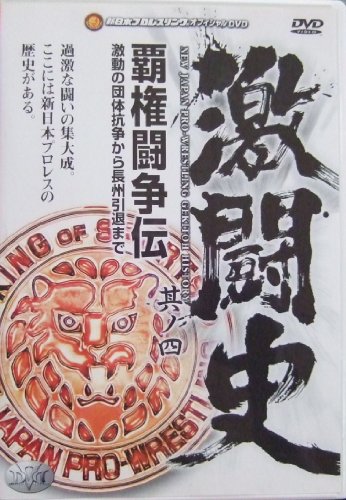 新日本プロレスリング オフィシャルDVD
DVD
VIDEO
激闘史
NEW JAPAN PRO-WRESTLING GEKITOH HISTORY
覇権闘争伝 其ノ四
激動の団体抗争から長州引退まで
過激な闘いの集大成。
ここには新日本プロレスの
歴史がある。
KING OF SPORTS
JAPAN PRO-WRESTLING